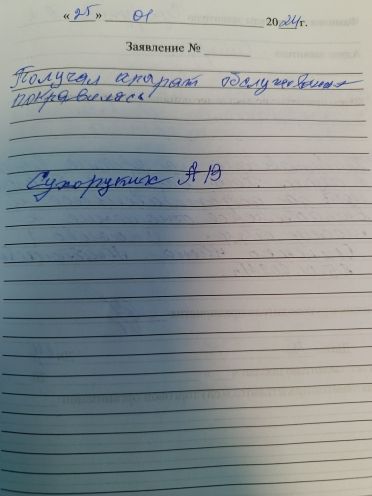 « 25 » 01 2024 г.
Заявление №
Получал апарат обслуживание
понравилась
Сухоруких А В